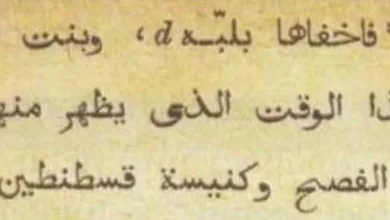 فاخفاها بلبّه d، وبنت
ذا الوقت الذى يظهر منه
الفصح وكنيسة قسطنطين